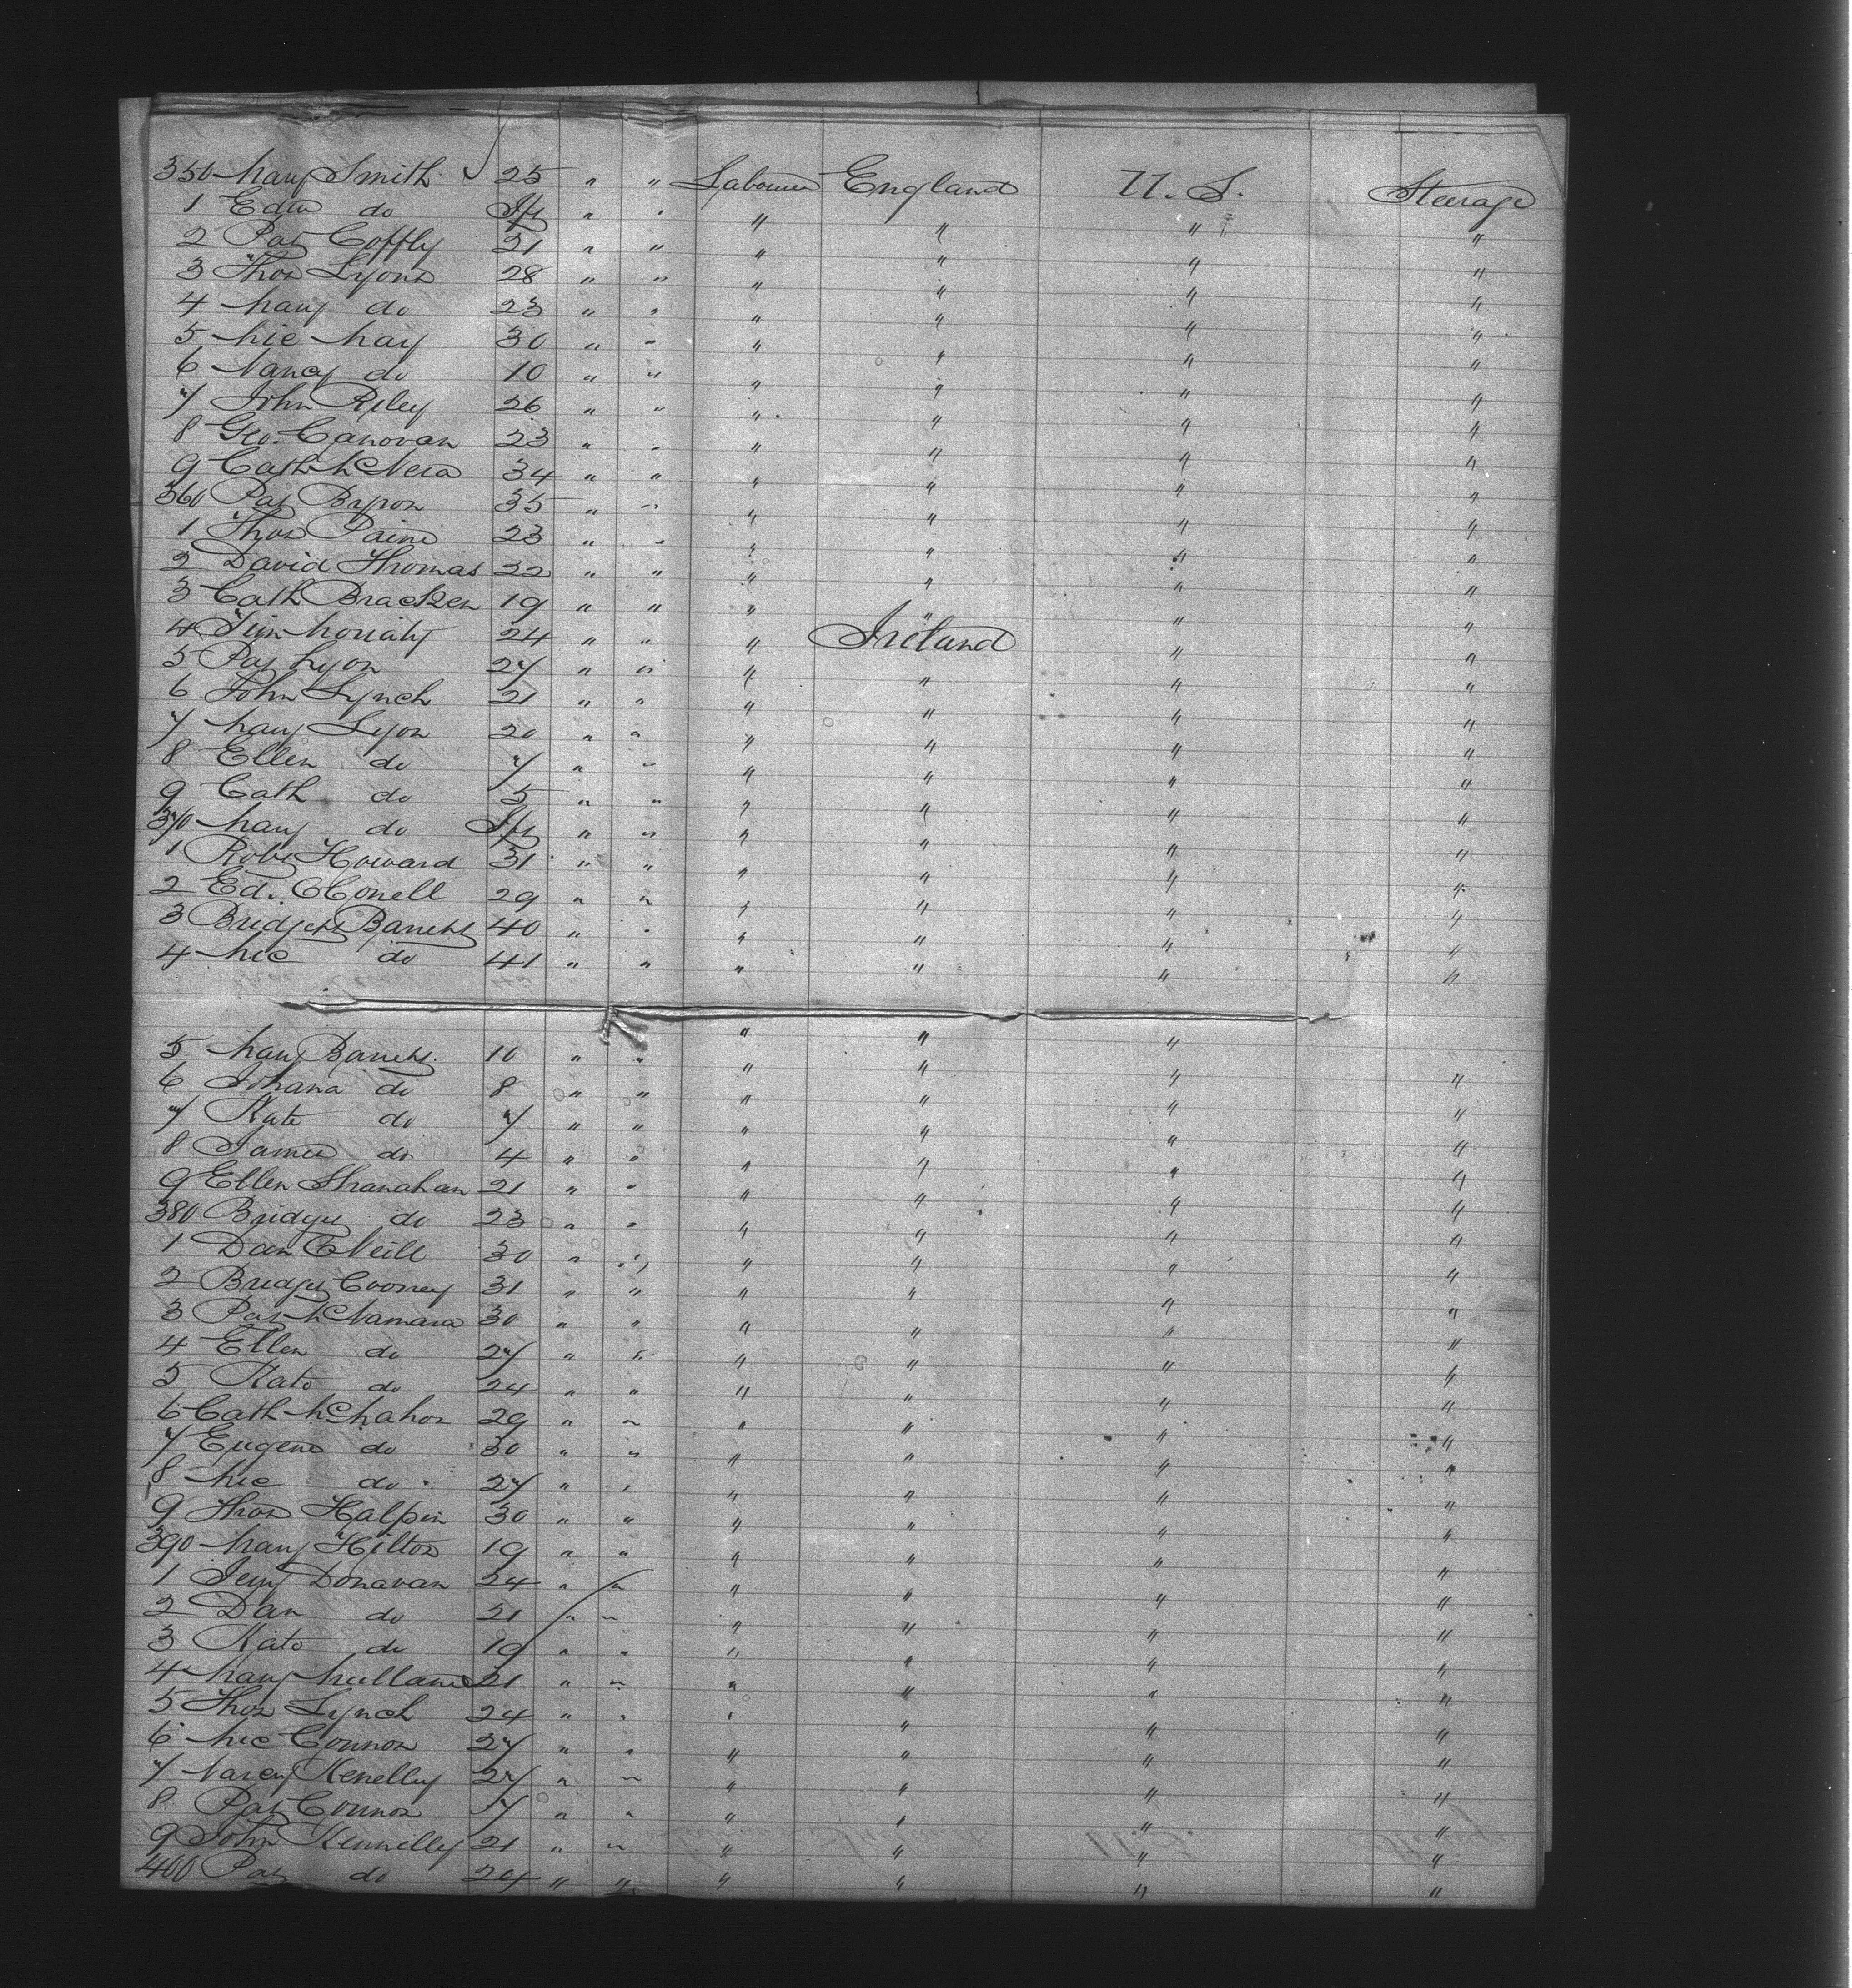 350 Mary Smith 25 " " Labourer England U.S. Steerage
1 Eden do Inft " " " " " "
2 Pat Coffly 21 " " " " " "
3 Thos Lyons 28 " " " " " "
4 Mary do 23 " " " " " "
5 Mic May 30 " " " " " "
6 Nancy do 10 " " " " " "
7 John Riley 26 " " " " " "
8 Geo. Canovan 23 " " " " " "
9 Cath McNera 34 " " " " " "
360 Pat Byron 35 " " " " " "
1 Thos Paine 23 " " " " " "
2 David Thomas 22 " " " " " "
3 Cath Bracken 19 " " " " " "
4 Tim Moriaty 24 " " " Ireland " "
5 Pat Lyon 27 " " " " " "
6 John Lynch 21 " " " " " "
7 Mary Lyon 20 " " " " " "
8 Ellen do 7 " " " " " "
9 Cath do 5 " " " " " "
370 Mary do Inft " " " " " "
1 Robt Howard 31 " " " " " "
2 Ed. OConell 29 " " " " " "
3 Bridget Barrett 40 " " " " " "
4 Mic do 41 " " " " " "
5 Mary Barrett 10 " " " " " "
6 Johana do 8 " " " " " "
7 Kate do 7 " " " " " "
8 James do 4 " " " " " "
9 Ellen Shanahan 21 " " " " " "
380 Bridget do 23 " " " " " "
1 Dan ONeill 30 " " " " " "
2 Bridget Cooney 31 " " " " " "
3 Pat McNamara 30 " " " " " "
4 Ellen do 27 " " " " " "
5 Kate do 24 " " " " " "
6 Cath McMahon 29 " " " " " "
7 Eugene do 30 " " " " " "
8 Mic do 27 " " " " " "
9 Thos Halpin 30 " " " " " "
390 Mary Hilton 19 " " " " " "
1 Jerry Donavan 24 " " " " " "
2 Dan do 21 " " " " " "
3 Kate do 19 " " " " " "
4 Mary Mullane 21 " " " " " "
5 Thos Lynch 24 " " " " " "
6 Mic Connor 27 " " " " " "
7 Nancy Kenelley 27 " " " " " "
8 Pat Connor 7 " " " " " "
9 John Kennelley 21 " " " " " "
400 Pat do 24 " " " " " "